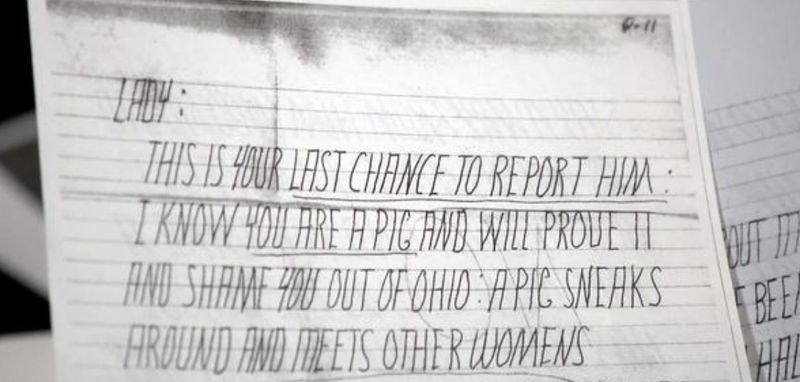 Q-11
LADY:
THIS IS YOUR LAST CHANCE TO REPORT HIM:
I KNOW YOU ARE A PIG AND WILL PROVE IT
AND SHAME YOU OUT OF OHIO: A PIG SNEAKS
AROUND AND MEETS OTHER WOMENS
OUT
BEEN